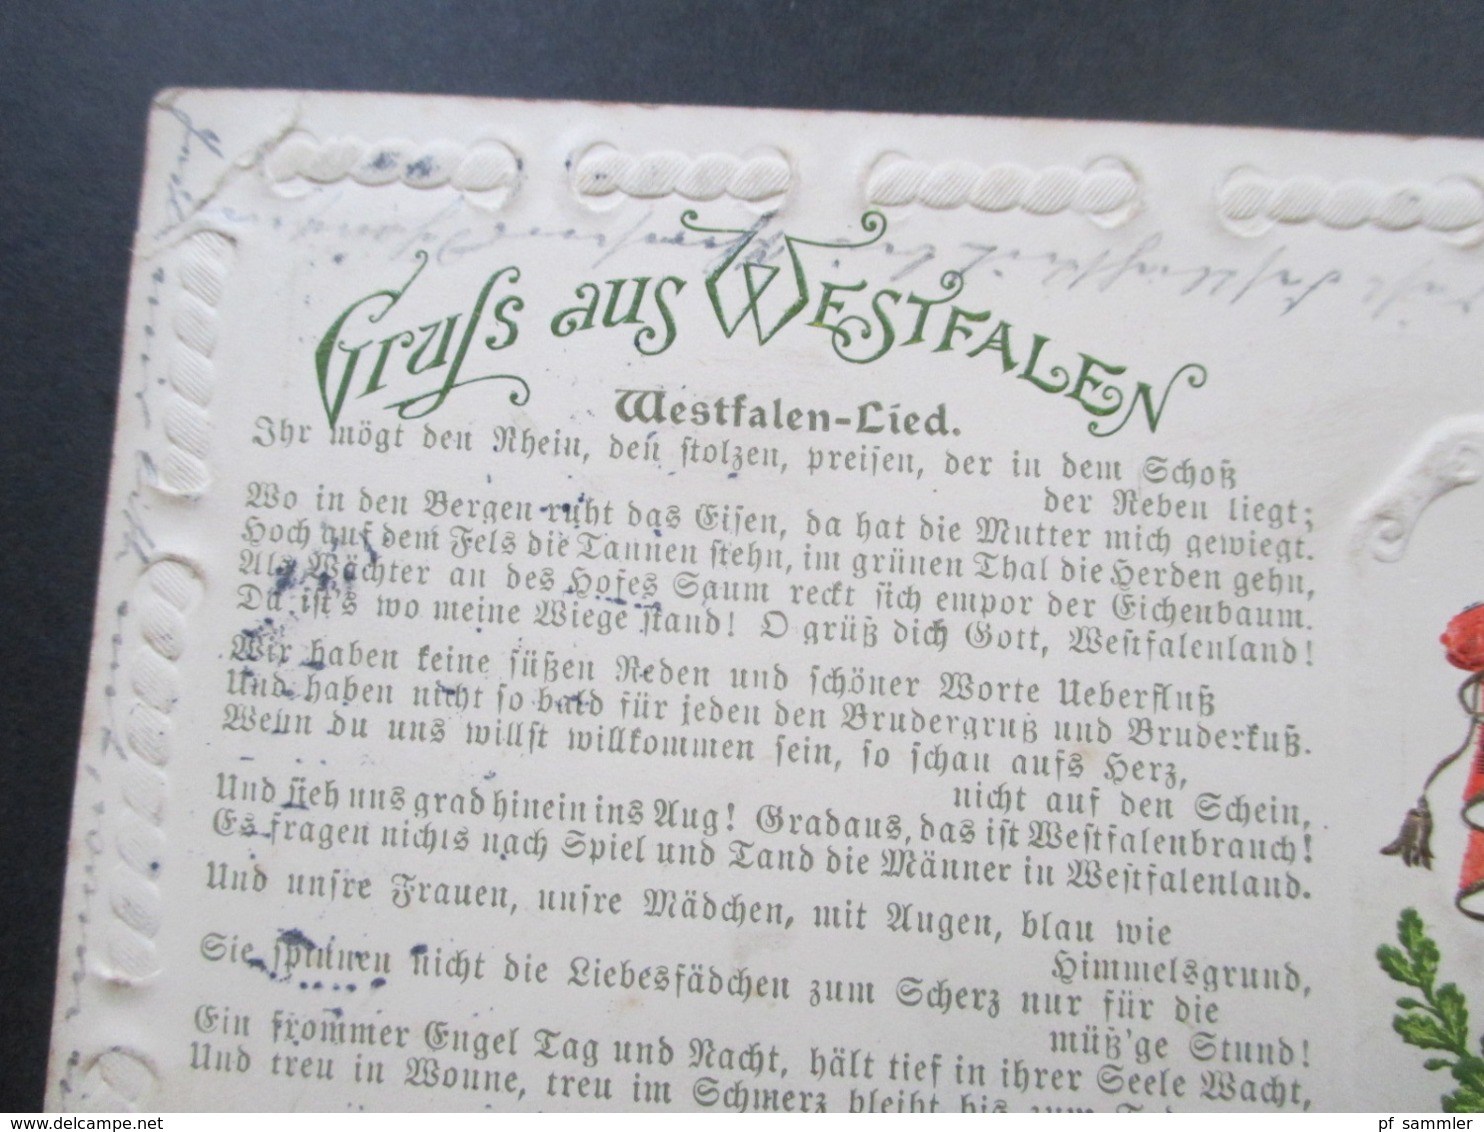 Gruss aus Westfalen
Westfalen-Lied.
Ihr mögt den Rhein, den stolzen, preisen, der in dem Schoß
der Reben liegt;
Wo in den Bergen ruht das Eisen, da hat die Mutter mich gewiegt.
Hoch auf dem Fels die Tannen stehn, im grünen Thal die Herden gehn,
Als Wächter an des Hofes Saum reckt sich empor der Eichenbaum.
Da ist's wo meine Wiege stand! O grüß dich Gott, Westfalenland!
Wir haben keine süßen Reden und schöner Worte Ueberfluß
Und haben nicht so bald für jeden den Brudergruß und Bruderkuß.
Wenn du uns willst willkommen sein, so schau aufs Herz,
nicht auf den Schein,
Und sieh uns grad hinein ins Aug! Gradaus, das ist Westfalenbrauch!
Es fragen nichts nach Spiel und Tand die Männer in Westfalenland.
Und unsre Frauen, unsre Mädchen, mit Augen, blau wie
Himmelsgrund,
Sie spinnen nicht die Liebesfädchen zum Scherz nur für die
müß'ge Stund!
Ein frommer Engel Tag und Nacht, hält tief in ihrer Seele Wacht,
Und treu in Wonne, treu im Schmerz bleibt bis zum
pf sammler
www.delcampe.net